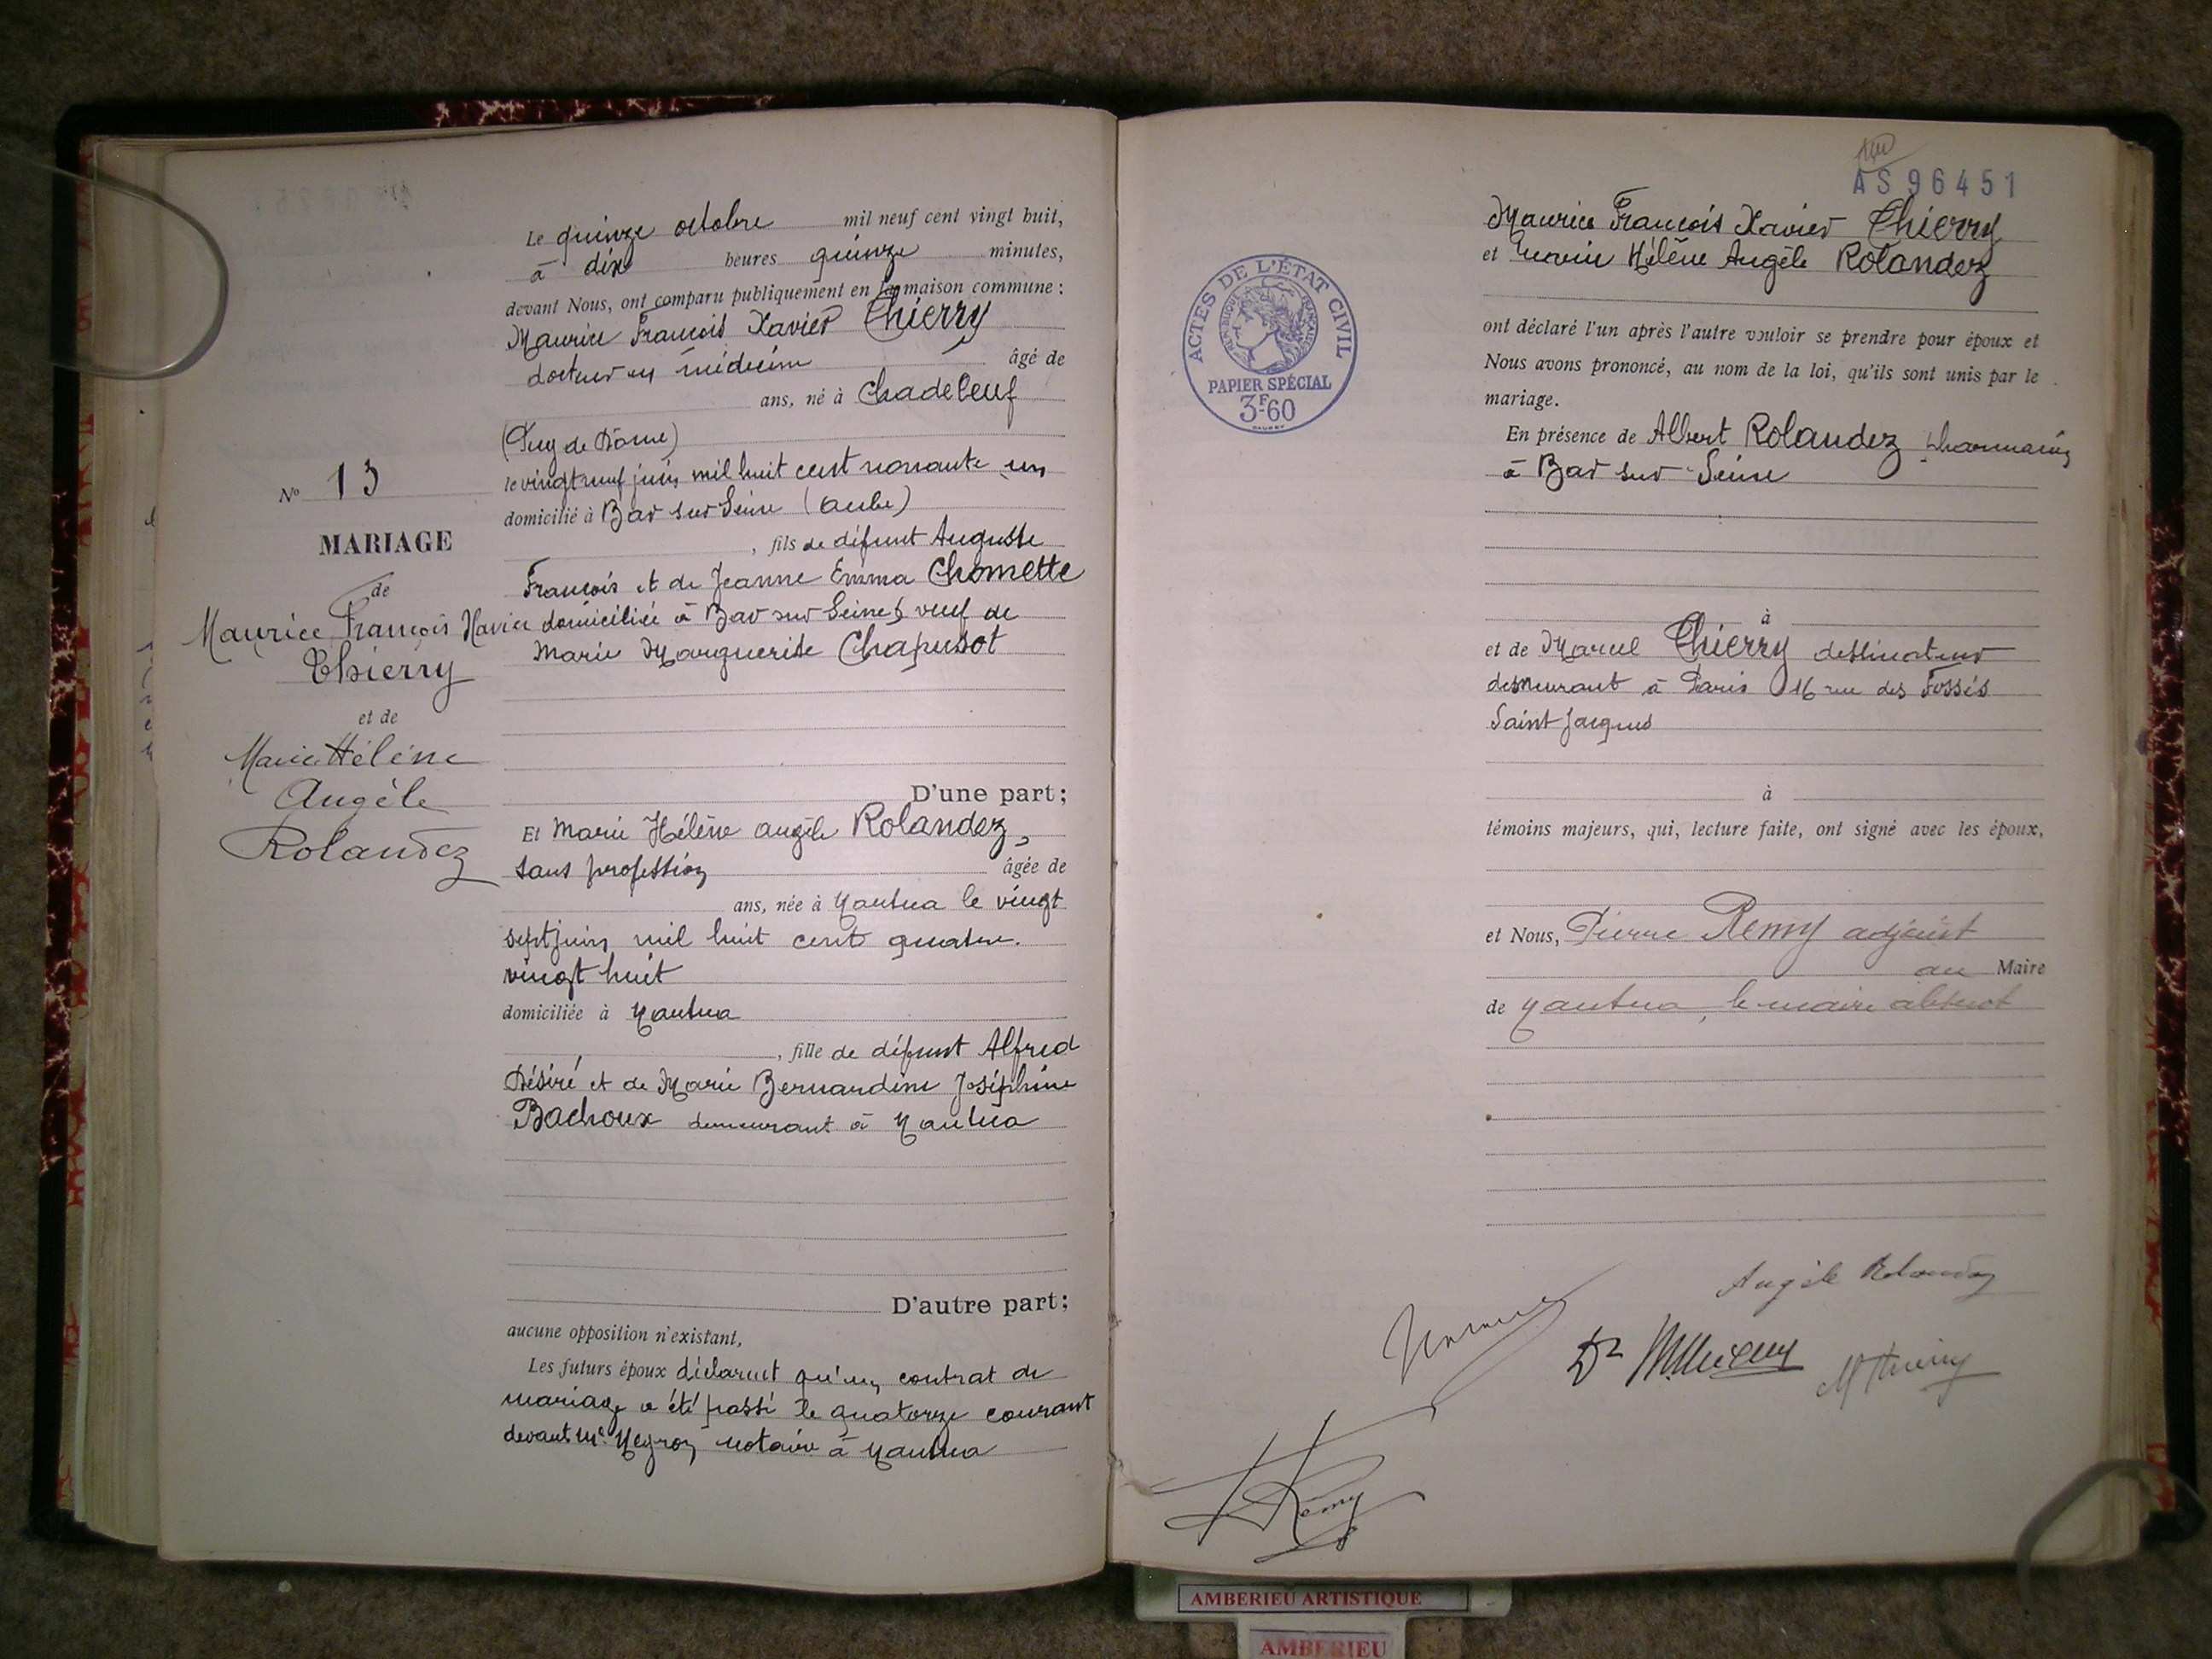 Nº 13
MARIAGE
de
Maurice François Xavier
Thierry
et de
Marie Hélène
Angèle
Rolandez
Le quinze octobre mil neuf cent vingt huit,
à dix heures quinze minutes,
devant Nous, ont comparu publiquement en la maison commune :
Maurice François Xavier Thierry
docteur en médecine âgé de
ans, né à Chadeleuf
(Puy de Dôme)
le vingt neuf juin mil huit cent nonante un
domicilié à Bar sur Seine (Aube)
, fils de défunt Auguste
François et de Jeanne Emma Chomette
domiciliée à Bar sur Seine, veuf de
Marie Marguerite Chapusot
D'une part;
Et Marie Hélène Angèle Rolandez,
sans profession âgée de
ans, née à Nantua le vingt
sept juin mil huit cent quatre
vingt huit
domiciliée à Nantua
, fille de défunt Alfred
Désiré et de Marie Bernardine Joséphine
Bachoux demeurant à Nantua
D'autre part;
aucune opposition n'existant,
Les futurs époux déclarent qu'un contrat de
mariage a été passé le quatorze courant
devant Me Neyron notaire à Nantua
AS 96451
Maurice François Xavier Thierry
et Marie Hélène Angèle Rolandez
ACTES DE L'ÉTAT CIVIL
PAPIER SPÉCIAL
3F60
ont déclaré l'un après l'autre vouloir se prendre pour époux et
Nous avons prononcé, au nom de la loi, qu'ils sont unis par le
mariage.
En présence de Albert Rolandez pharmacien
à Bar sur Seine
à
et de Marcel Thierry dessinateur
demeurant à Paris 16 rue des Fossés
Saint Jacques
à
témoins majeurs, qui, lecture faite, ont signé avec les époux,
et Nous, Pierre Remy adjoint
au Maire
de Nantua, le maire absent
Angèle Rolandez
Dr
M Thierry
Rémy
AMBERIEU ARTISTIQUE
AMBERIEU